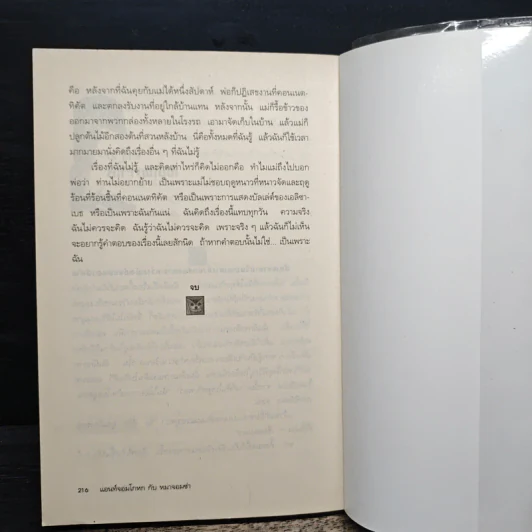 คือ หลังจากที่ฉันคุยกับแม่ได้หนึ่งสัปดาห์ พ่อก็ปฏิเสธงานที่คอนเนต-
ทิคัต และตกลงรับงานที่อยู่ใกล้บ้านแทน หลังจากนั้น แม่ก็รื้อข้าวของ
ออกมาจากพวกกล่องทั้งหลายในโรงรถ เอามาจัดเก็บในบ้าน แล้วแม่ก็
ปลูกต้นไม้อีกสองต้นที่สวนหลังบ้าน นี่คือทั้งหมดที่ฉันรู้ แล้วฉันก็ใช้เวลา
มากมายมานั่งคิดถึงเรื่องอื่น ๆ ที่ฉันไม่รู้
เรื่องที่ฉันไม่รู้ และคิดเท่าไหร่ก็คิดไม่ออกคือ ทำไมแม่ถึงไปบอก
พ่อว่า ท่านไม่อยากย้าย เป็นเพราะแม่ไม่ชอบฤดูหนาวที่หนาวจัดและฤดู
ร้อนที่ร้อนชื้นที่คอนเนตทิคัต หรือเป็นเพราะการแสดงบัลเลต์ของเอลิซา-
เบธ หรือเป็นเพราะฉันกันแน่ ฉันคิดถึงเรื่องนี้แทบทุกวัน ความจริง
ฉันไม่ควรจะคิด ฉันรู้ว่าฉันไม่ควรคิด เพราะจริง ๆ แล้วฉันก็ไม่เห็น
จะอยากรู้คำตอบของเรื่องนี้เลยสักนิด ถ้าหากคำตอบนั้นไม่ใช่... เป็นเพราะ
ฉัน
จบ
216 แอนท์จอมโกหก กับ หมาจอมซ่า